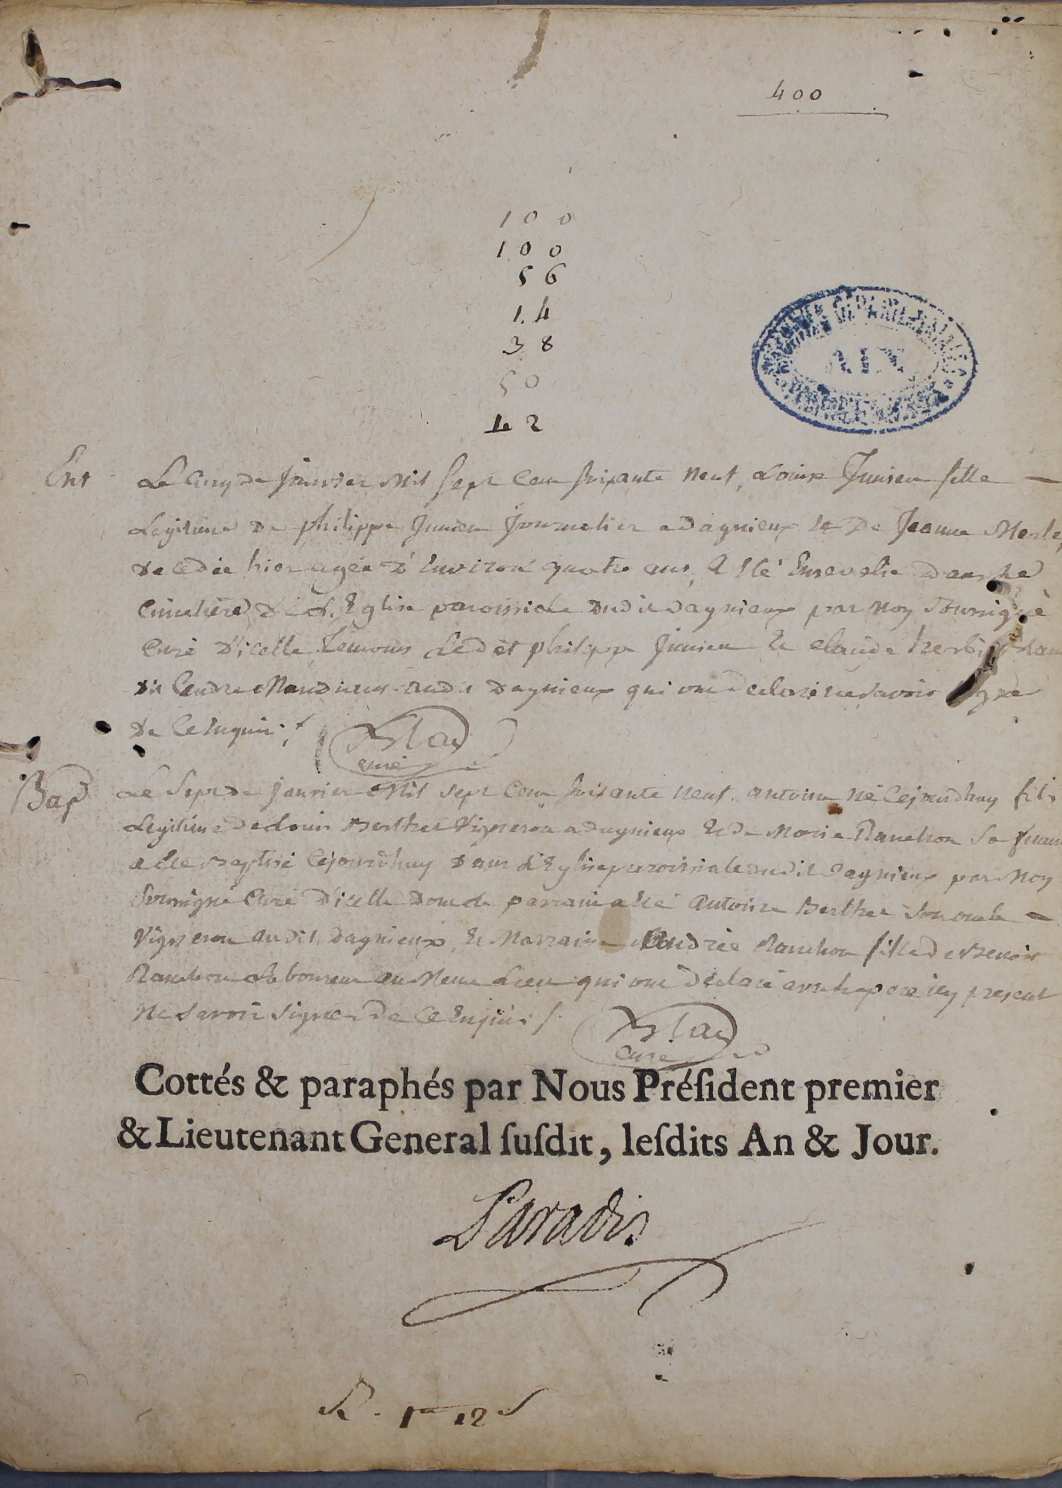 400
100
100
56
14
38
50
42
AIN
Ent Le cinq de janvier Mil sept cen soixante neuf, Louise Junien fille
Legitime de philippe Junien Journalier a dagnieux et De Jeanne Merle,
decedée hier agée d'Environ quatre ans, a Eté Ensevelie dans Le
Cimetière de L'Eglise paroissiale dudit dagnieux par moy soussigné
Curé D'icelle, Temoins Ledet philippe Junien et claude
dit audit dagnieux qui ont declaré ne savoir signer
de Ce Enquis /
curé
Bap Le Sept de janvier Mil sept cens soixante neuf, antoine né Cejourdhuy fils
Legitime de Louis Berthet Vigneron a dagnieux et de Marie Ranchon Sa femme
a Eté Baptisé Cejourdhuy dans L'Eglise paroissiale dudit dagnieux par Moy
soussigné Curé D'icelle dont le parrain a Eté antoine Berthet son oncle
Vigneron audit dagnieux, et Marraine Andrée Ranchon fille de Benoit
Ranchon Laboureur au Meme Lieu qui ont déclaré avec le pere icy present
Ne Savoir Signer de Ce Enquis /.
Curé
Cottés & paraphés par Nous Préſident premier
& Lieutenant General ſuſdit, leſdits An & Jour.
Paradis